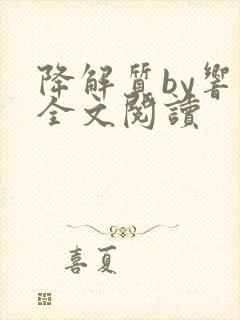 降解質by響
全文閱讀
喜夏